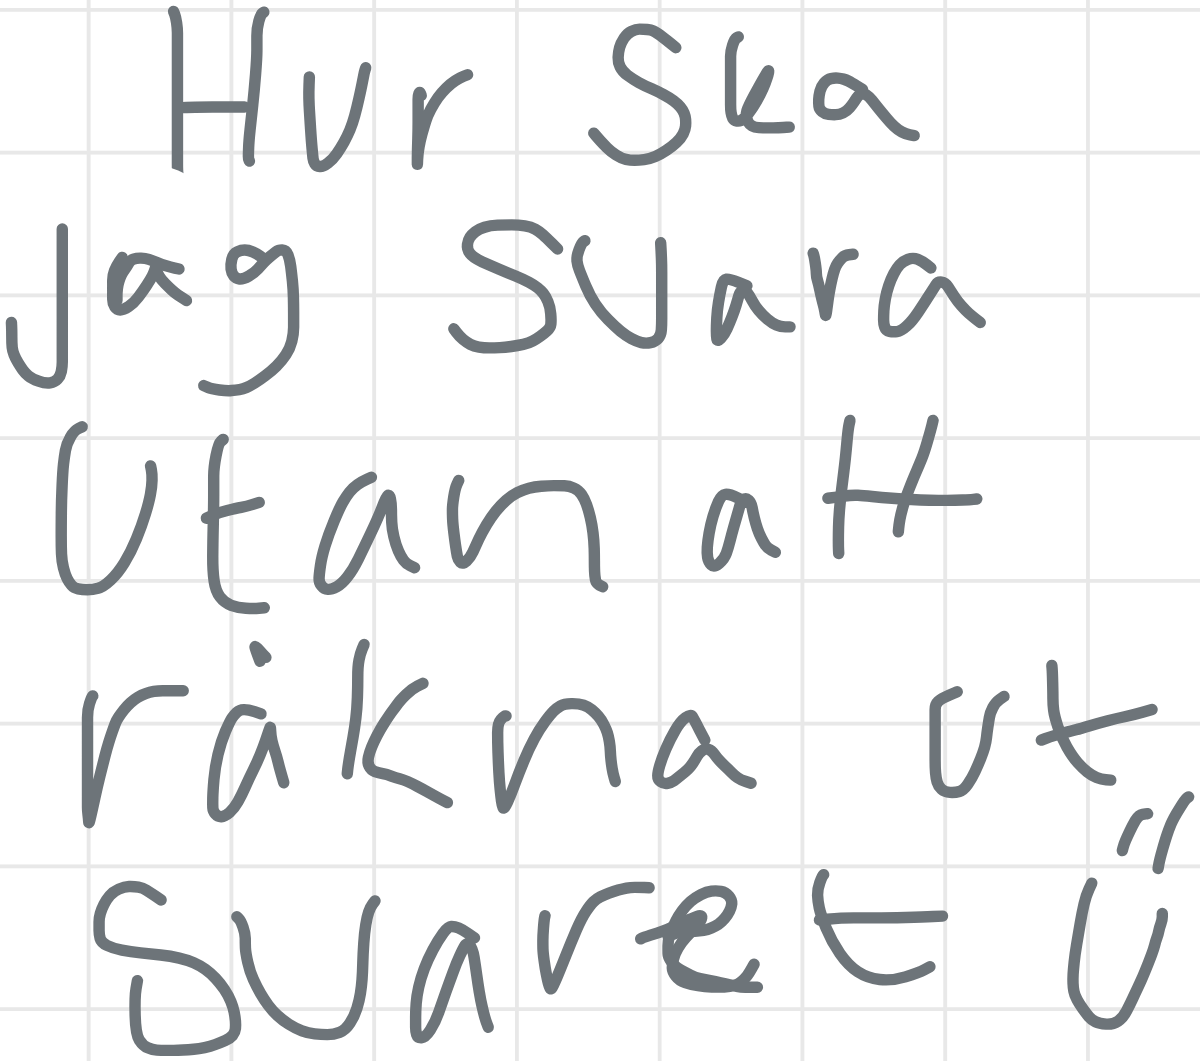 Hur Ska
jag Svara
Utan att
räkna ut
Svaret Ü